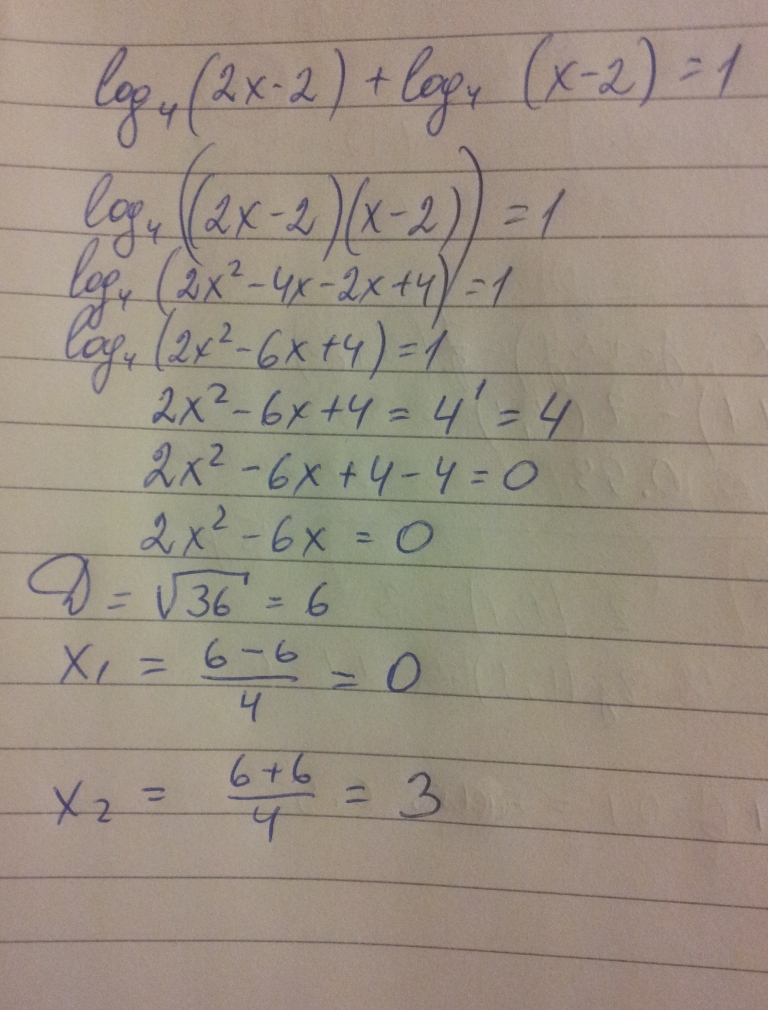 log₄(2x-2)+log₄ (x-2)=1
log₄((2x-2)(x-2))=1
log₄(2x²-4x-2x+4)=1
log₄(2x²-6x+4)=1
2x²-6x+4=4¹=4
2x²-6x+4-4=0
2x²-6x=0
D=√36=6
x₁ = (6-6)/4 = 0
x₂ = (6+6)/4 = 3